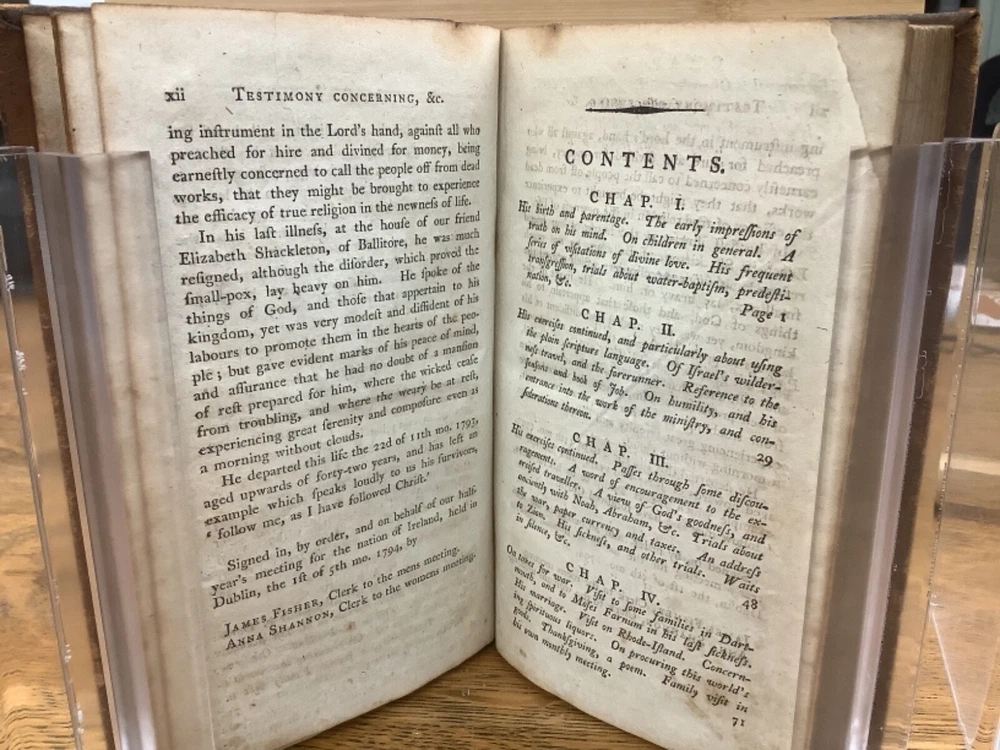 xii TESTIMONY CONCERNING, &c.
ing inſtrument in the Lord's hand, againſt all who
preached for hire and divined for money, being
earneſtly concerned to call the people off from dead
works, that they might be brought to experience
the efficacy of true religion in the newneſs of life.
In his laſt illneſs, at the houſe of our friend
Elizabeth Shackleton, of Ballitore, he was much
reſigned, although the diſorder, which proved the
ſmall-pox, lay heavy on him. He ſpoke of the
things of God, and thoſe that appertain to his
kingdom, yet was very modeſt and diffident of his
labours to promote them in the hearts of the peo-
ple; but gave evident marks of his peace of mind,
and aſſurance that he had no doubt of a manſion
of reſt prepared for him, where the wicked ceaſe
from troubling, and where the weary be at reſt,
experiencing great ſerenity and compoſure even as
a morning without clouds.
He departed this life the 22d of 11th mo. 1793,
aged upwards of forty-two years, and has left an
example which ſpeaks loudly to us his ſurvivors,
‘ follow me, as I have followed Chriſt.’
Signed in, by order, and on behalf of our half-
year's meeting for the nation of Ireland, held in
Dublin, the 1ſt of 5th mo. 1794, by
JAMES FISHER, Clerk to the mens meeting.
ANNA SHANNON, Clerk to the womens meeting.
CONTENTS.
CHAP. I.
His birth and parentage. The early impreſſions of
truth on his mind. On children in general. A
ſeries of viſitations of divine love. His frequent
tranſgreſſion, trials about water-baptiſm, predeſti-
nation, &c. Page 1
CHAP. II.
His exerciſes continued, and particularly about uſing
the plain ſcripture language. Of Iſrael's wilder-
neſs travel, and the forerunner. Reference to the
ſeaſons and book of Job. On humility, and his
entrance into the work of the miniſtry, and con-
ſiderations thereon. 29
CHAP. III.
His exerciſes continued. Paſſes through ſome diſcou-
ragements. A word of encouragement to the ex-
erciſed traveller. A view of God's goodneſs, and
anciently with Noah, Abraham, &c. Trials about
the war, paper currency and taxes. An addreſs
to Zion. His ſickneſs, and other trials. Waits
in ſilence, &c. 48
CHAP. IV.
On taxes for war. Viſit to ſome families in Dart-
mouth, and to Moſes Farnum in his laſt ſickneſs.
His marriage. Viſit on Rhode-Iſland. Concern-
ing ſpirituous liquors. On procuring this world's
goods. Thankſgiving, a poem. Family viſit in
his own monthly meeting. 71